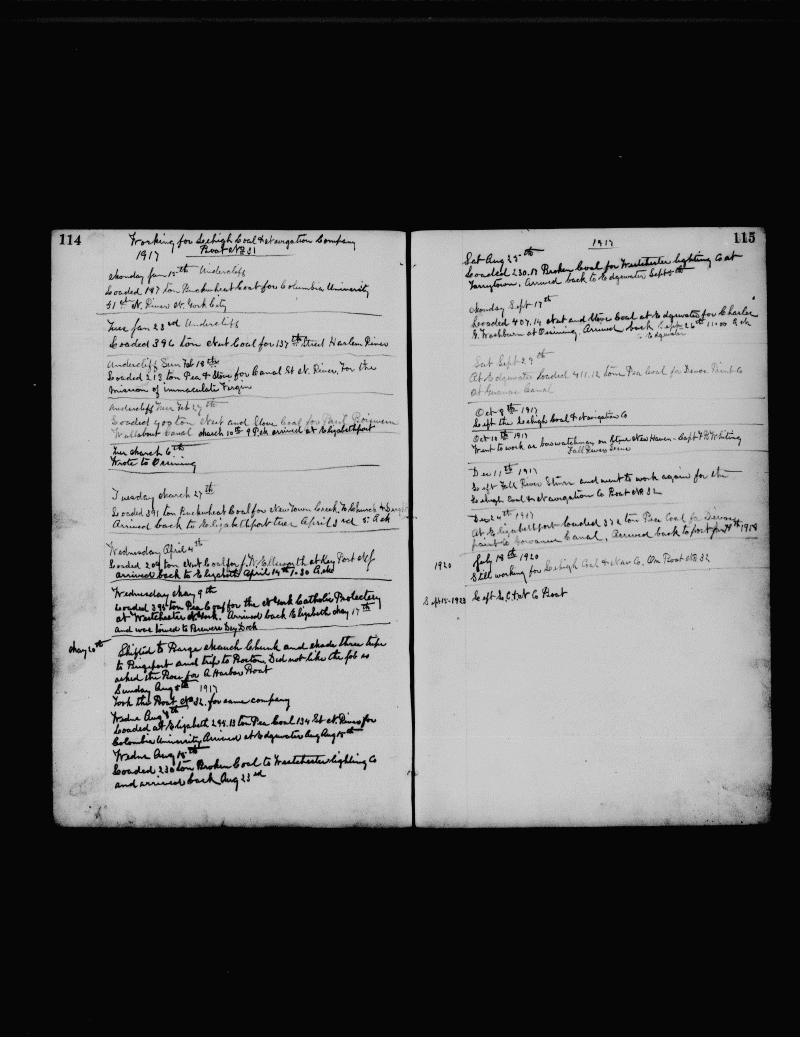 114
Working for Lehigh Coal & Navigation Company
1917 Boat No 31
Monday Jan 15th Undercliff
Loaded 187 ton Buckwheat Coal for Columbia University
51 st N. River N. York City
Tues Jan 23rd Undercliff
Loaded 396 ton Nut Coal for 137th Street Harlem River
Undercliff Sun Feb 18th
Loaded 213 ton Pea & Stove for Canal St N. River, For the
mission of immaculate Virgin
Undercliff Tues Feb 27th
Loaded 409 ton Nut and Stove Coal for Paul
Wallabout Canal March 10th 9 P.M. arrived at Elizabethport
Tues March 6th
Wrote to Ossining
Tuesday March 27th
Loaded 391 ton Buckwheat Coal for Newtown Creek, To Church &
Arrived back to Elizabethport Tues April 3rd 5: A.M
Wednesday April 4th
Loaded 204 ton Nut Coal for J. W. Ellsworth at Key Port N J
arrived back to Elizabeth April 14th 1-30 A.M
Wednesday May 9th
Loaded 395 ton Pea Coal for the N York Catholic Protectery
at Westchester N York. Arrived back Elizabeth May 17th
and was towed to Brewers Dry Dock
May 20th Shifted to Barge Mauch Chunk and Made three trips
to Bridgeport and trip to Boston Did not like the job as
asked the Boss for a Harbor Boat
Sunday Aug 5th 1917
Took the Boat No 32. for same company
Wedns Aug 8th
Loaded at Elizabeth 299.13 ton Pea Coal 134 St N. River for
Colombia University Arrived at Edgewater Aug 15th
Wedns Aug 15th
Loaded 230 ton Broken Coal to Westchester Lighting Co
and arrived back Aug 23rd
115
1917
Sat Aug 25th
Loaded 230.17 Broken Coal for Westchester Lighting Co at
Tarrytown. Arrived back to Edgewater Sept 5th
Monday Sept 17th
Loaded 407.14 Nut and Stove Coal at Edgewater for Charles
G. Washburn at Ossining. Arrived back Sept 26th 11:00 A.M
to Edgewater
Sat Sept 29th
At Edgewater Loaded 411.12 tons Pea Coal for Devoe Paint Co
at Gowanus Canal
Oct 8th 1917
Left the Lehigh Coal & Navigation Co
Oct 10th 1917
Went to work as bowwatchman on Stmr New Haven - Capt F P Whiting
Fall River Line
Dec 11th 1917
Left Fall River Stmr and went to work again for the
Lehigh Coal & Navigation Co Boat No 32
Dec 24th 1917
At Elizabethport Loaded 372 ton Pea Coal for Devoe
paint Co Gowanus Canal, Arrived back to port Jan 9th 1918
1920 July 18th 1920
Still working for Lehigh Coal & Nav Co. On Boat No 32
Sept 15-1923 Left L.C.&N Co Boat